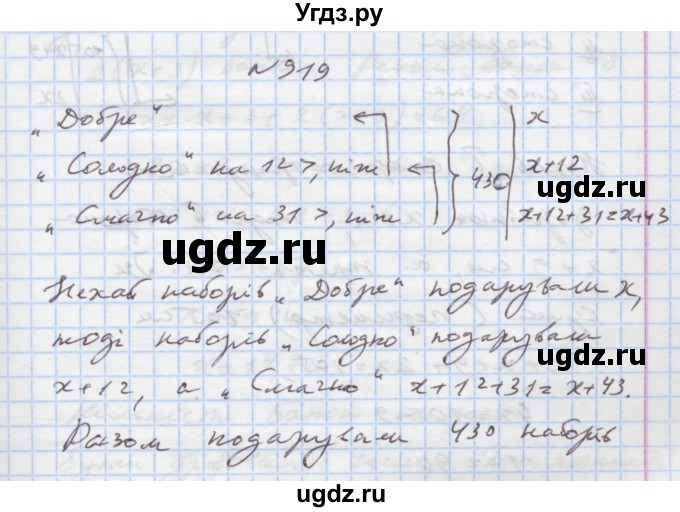 Угдз.ру
N 919
„Добре“ x
„Солодно“ на 12 >, ніж 430 x+12
„Смачно“ на 31 >, ніж x+12+31=x+43
ugdz.ru ugdz.ru
Нехай наборів „Добре“ подарували x,
тоді наборів „Солодно“ подарували
x+12, а „Смачно“ x+12+31=x+43.
ugdz.ru
Разом подарували 430 наборів
ugdz.ru